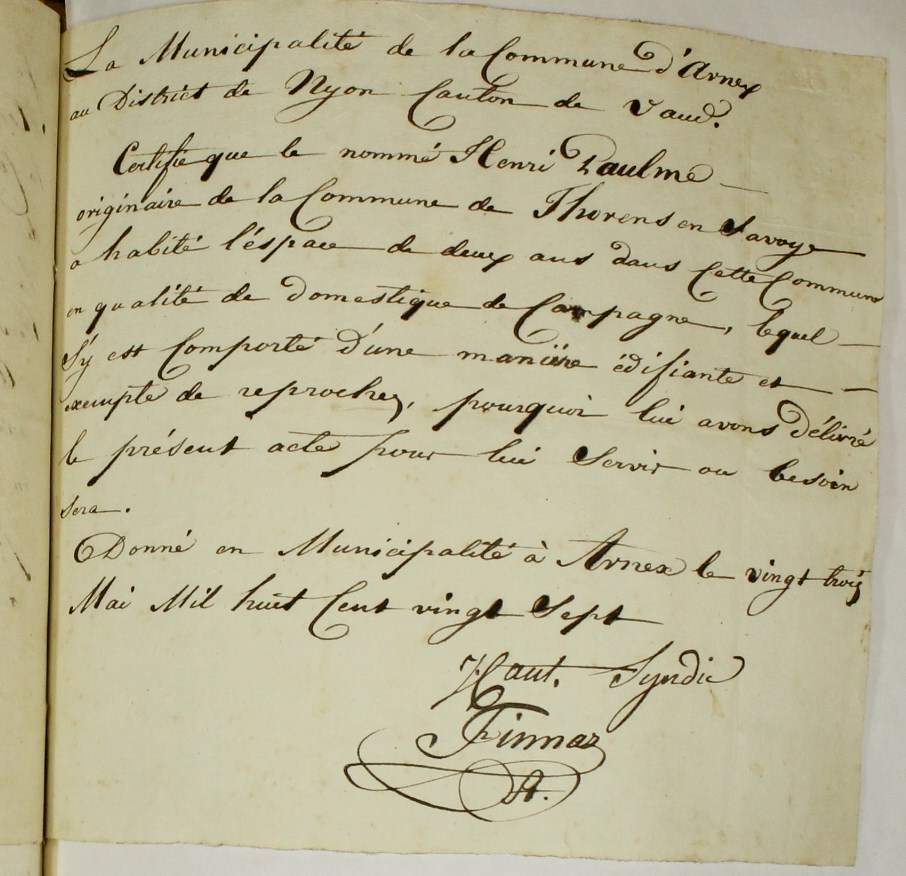 La Municipalité de la Commune d'Arnex
au District de Nyon Canton de Vaud.
Certifie que le nommé Henri Paulme —
originaire de la Commune de Thorens en Savoye
a habité l'éspace de deux ans dans Cette Commune
en qualité de Domestique de Campagne, lequel —
S'y est Comporté D'une manière édifiante et —
exempte de reproches, pourquoi lui avons Délivré
le présent acte pour lui Servir ou besoin
sera.
Donné en Municipalité à Arnex le vingt trois
Mai Mil huit Cent vingt Sept
Haut. Syndic